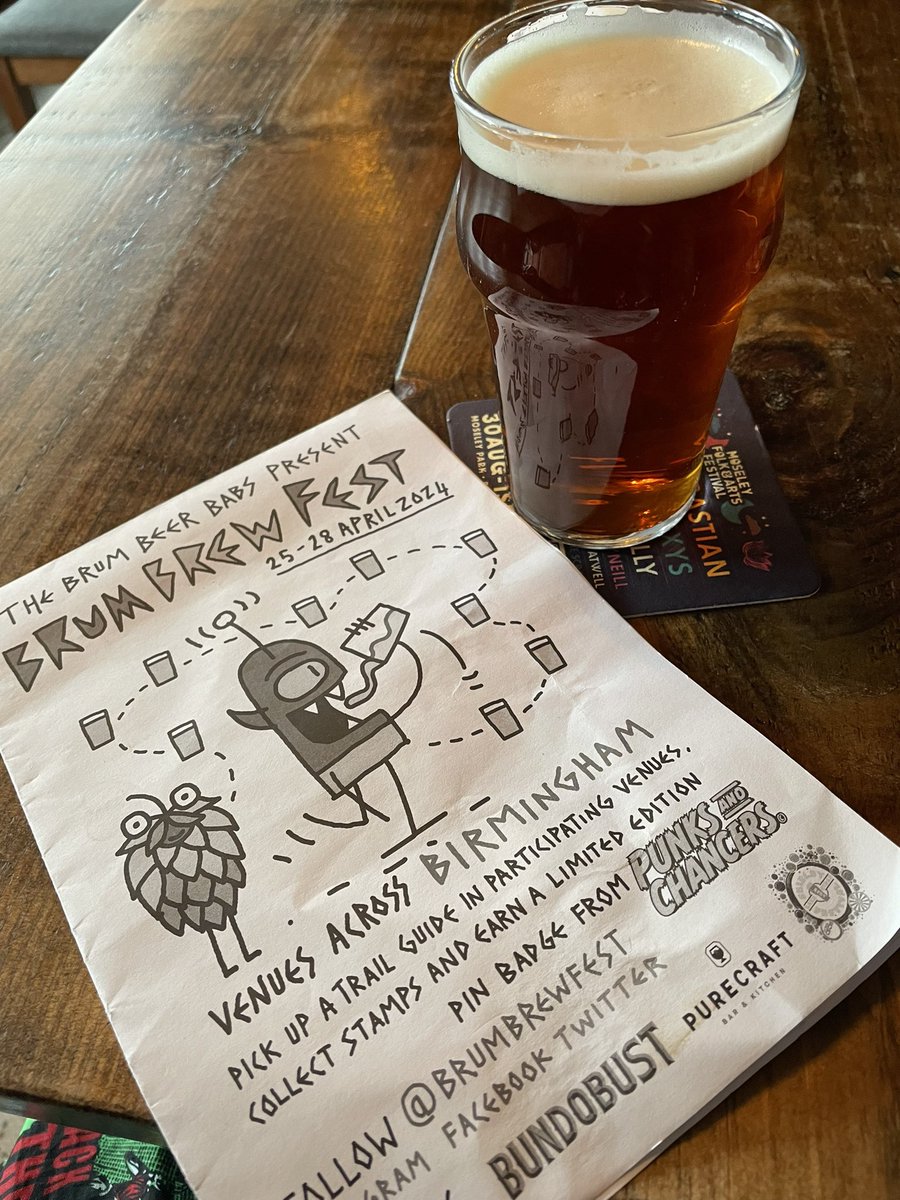 THE BRUM BEER BABS PRESENT
BRUM BREW FEST
25-28 APRIL 2024
VENUES ACROSS BIRMINGHAM
PICK UP A TRAIL GUIDE IN PARTICIPATING VENUES.
COLLECT STAMPS AND EARN A LIMITED EDITION
PIN BADGE FROM PUNKS AND CHANCERS.
FOLLOW @BRUMBREWFEST
FACEBOOK TWITTER
BUNDOBUST
PURECRAFT
BAR & KITCHEN
MOSELEY
FOLK & ARTS
FESTIVAL
30 AUG
MOSELEY PARK
NEILL
ATWELL